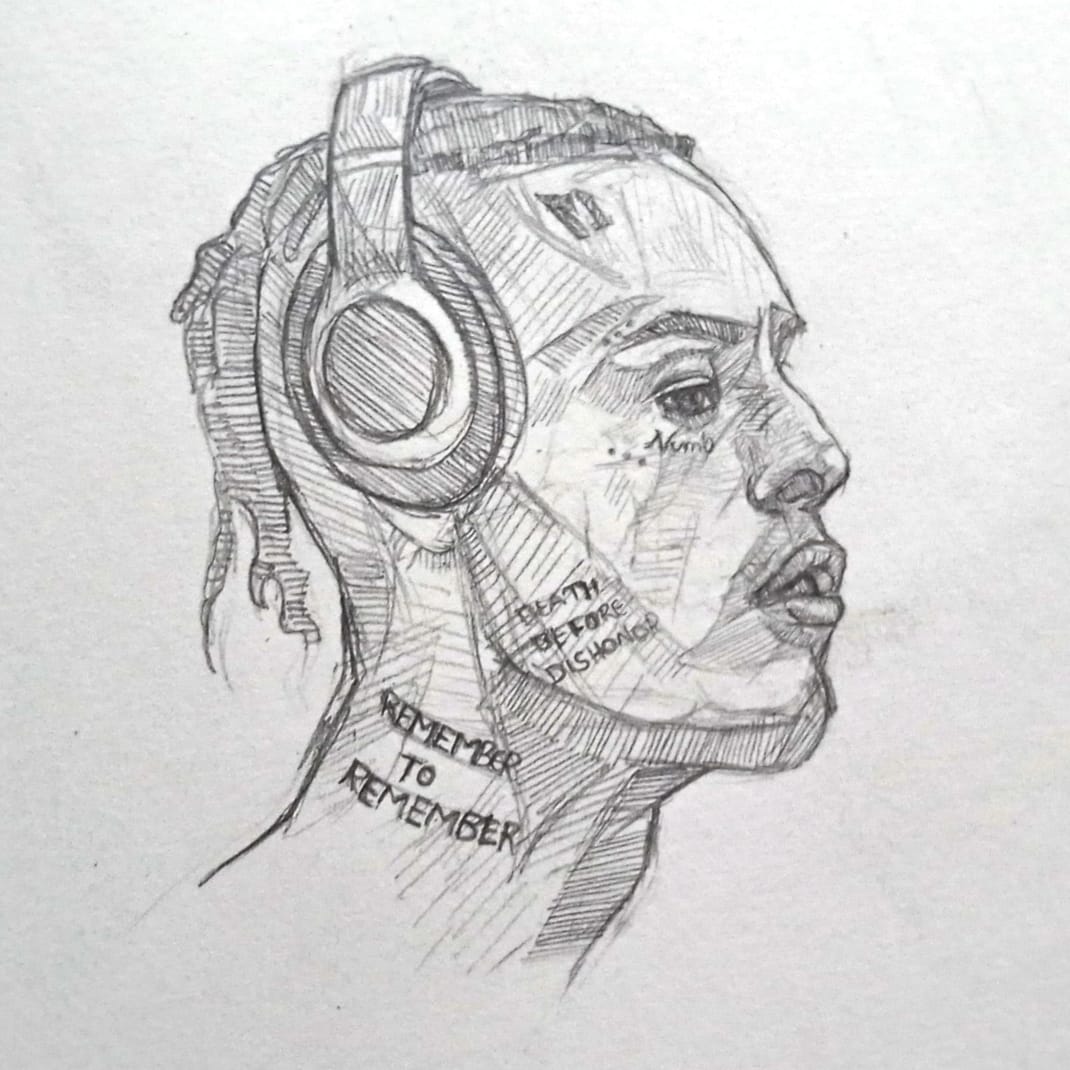 Numb
DEATH
BEFORE
DISHONOR
REMEMBER
TO
REMEMBER